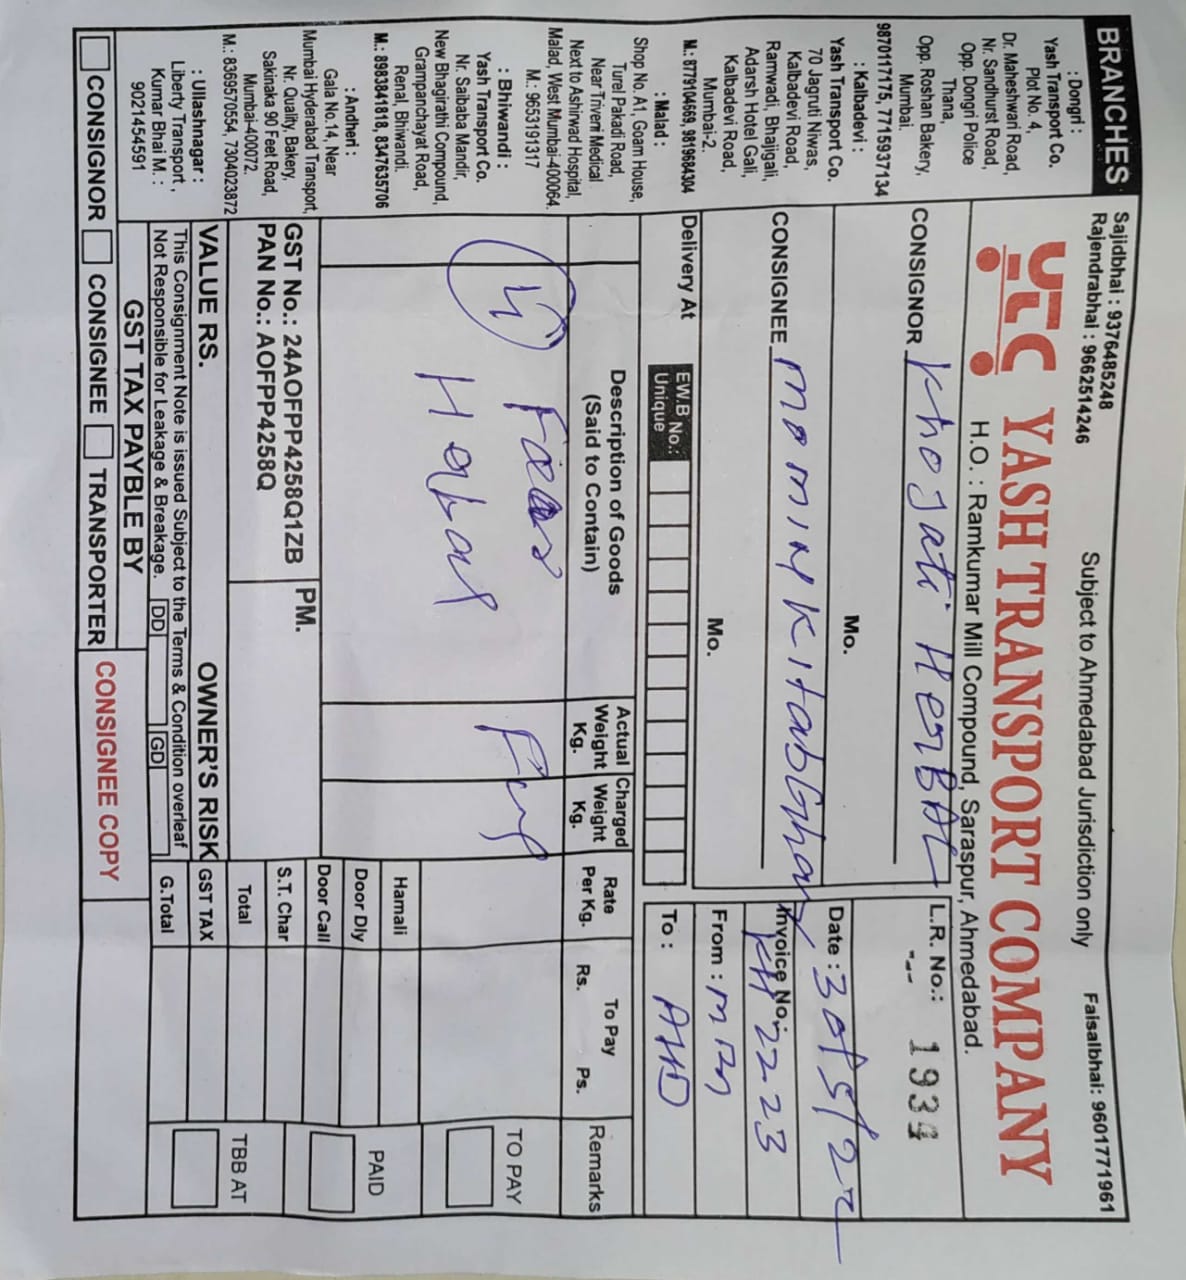 Sajidbhai : 9376485248
Rajendrabhai : 9662514246
Subject to Ahmedabad Jurisdiction only
Faisalbhai: 9601771961
BRANCHES
YTC YASH TRANSPORT COMPANY
H.O. : Ramkumar Mill Compound, Saraspur, Ahmedabad.
: Dongri :
Yash Transport Co.
Plot No. 4,
Dr. Maheshwari Road,
Nr. Sandhurst Road,
Opp. Dongri Police
Thana,
Opp. Roshan Bakery,
Mumbai.
9870117175, 7715937134
: Kalbadevi :
Yash Transport Co.
70 Jagruti Niwas,
Kalbadevi Road,
Ramwadi, Bhajigali,
Adarsh Hotel Gali,
Kalbadevi Road,
Mumbai-2.
M.: 8779104669, 981964304
: Malad :
Shop No. A1, Goam House,
Turel Pakadi Road,
Near Triveni Medical
Next to Ashirwad Hospital,
Malad, West Mumbai-400064.
M.: 9653191317
: Bhiwandi :
Yash Transport Co.
Nr. Saibaba Mandir,
New Bhagirathi Compound,
Grampanchayat Road,
Renal, Bhiwandi.
M.: 8983841818, 8347635706
: Andheri :
Gala No.14, Near
Mumbai Hyderabad Transport,
Nr. Quality, Bakery,
Sakinaka 90 Feet Road,
Mumbai-400072.
M.: 8369570554, 7304023872
: Ullashnagar :
Liberty Transport ,
Kumar Bhai M.:
9021454591
CONSIGNOR Khojati HerBAL
Mo.
L.R. No.: 1934
CONSIGNEE momin Kitabghar
Mo.
Date : 30/5/22
Invoice No. KH 2223
From : mm
To : AHD
Delivery At
EW.B No.:
Unique
Description of Goods
(Said to Contain)
Actual
Weight
Kg.
Charged
Weight
Kg.
Rate
Per Kg.
To Pay
Rs. Ps.
Remarks
Hebal
Hamali
Door Dly
Door Call
S.T. Char
Total
GST TAX
G.Total
TO PAY
PAID
TBB AT
GST No.: 24AOFPP4258Q1ZB
PAN No.: AOFPP4258Q
PM.
VALUE RS.
OWNER'S RISK
This Consignment Note is issued Subject to the Terms & Condition overleaf
Not Responsible for Leakage & Breakage. DD GD
GST TAX PAYBLE BY
CONSIGNOR CONSIGNEE TRANSPORTER
CONSIGNEE COPY